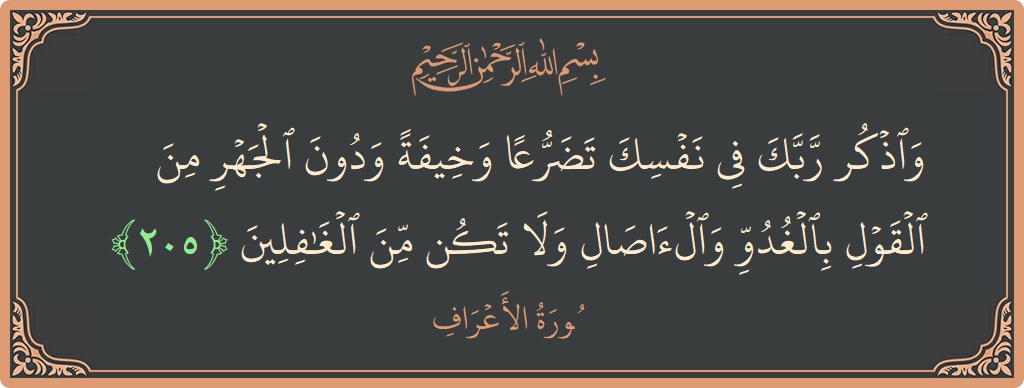 بِسْمِ اللهِ الرَّحْمٰنِ الرَّحِيْمِ
وَٱذۡكُر رَّبَّكَ فِي نَفۡسِكَ تَضَرُّعًا وَخِيفَةً وَدُونَ ٱلۡجَهۡرِ مِنَ
ٱلۡقَوۡلِ بِٱلۡغُدُوِّ وَٱلۡءَاصَالِ وَلَا تَكُن مِّنَ ٱلۡغَٰفِلِينَ ﴿٢٠٥﴾
سُورَةُ الأَعۡرَافِ